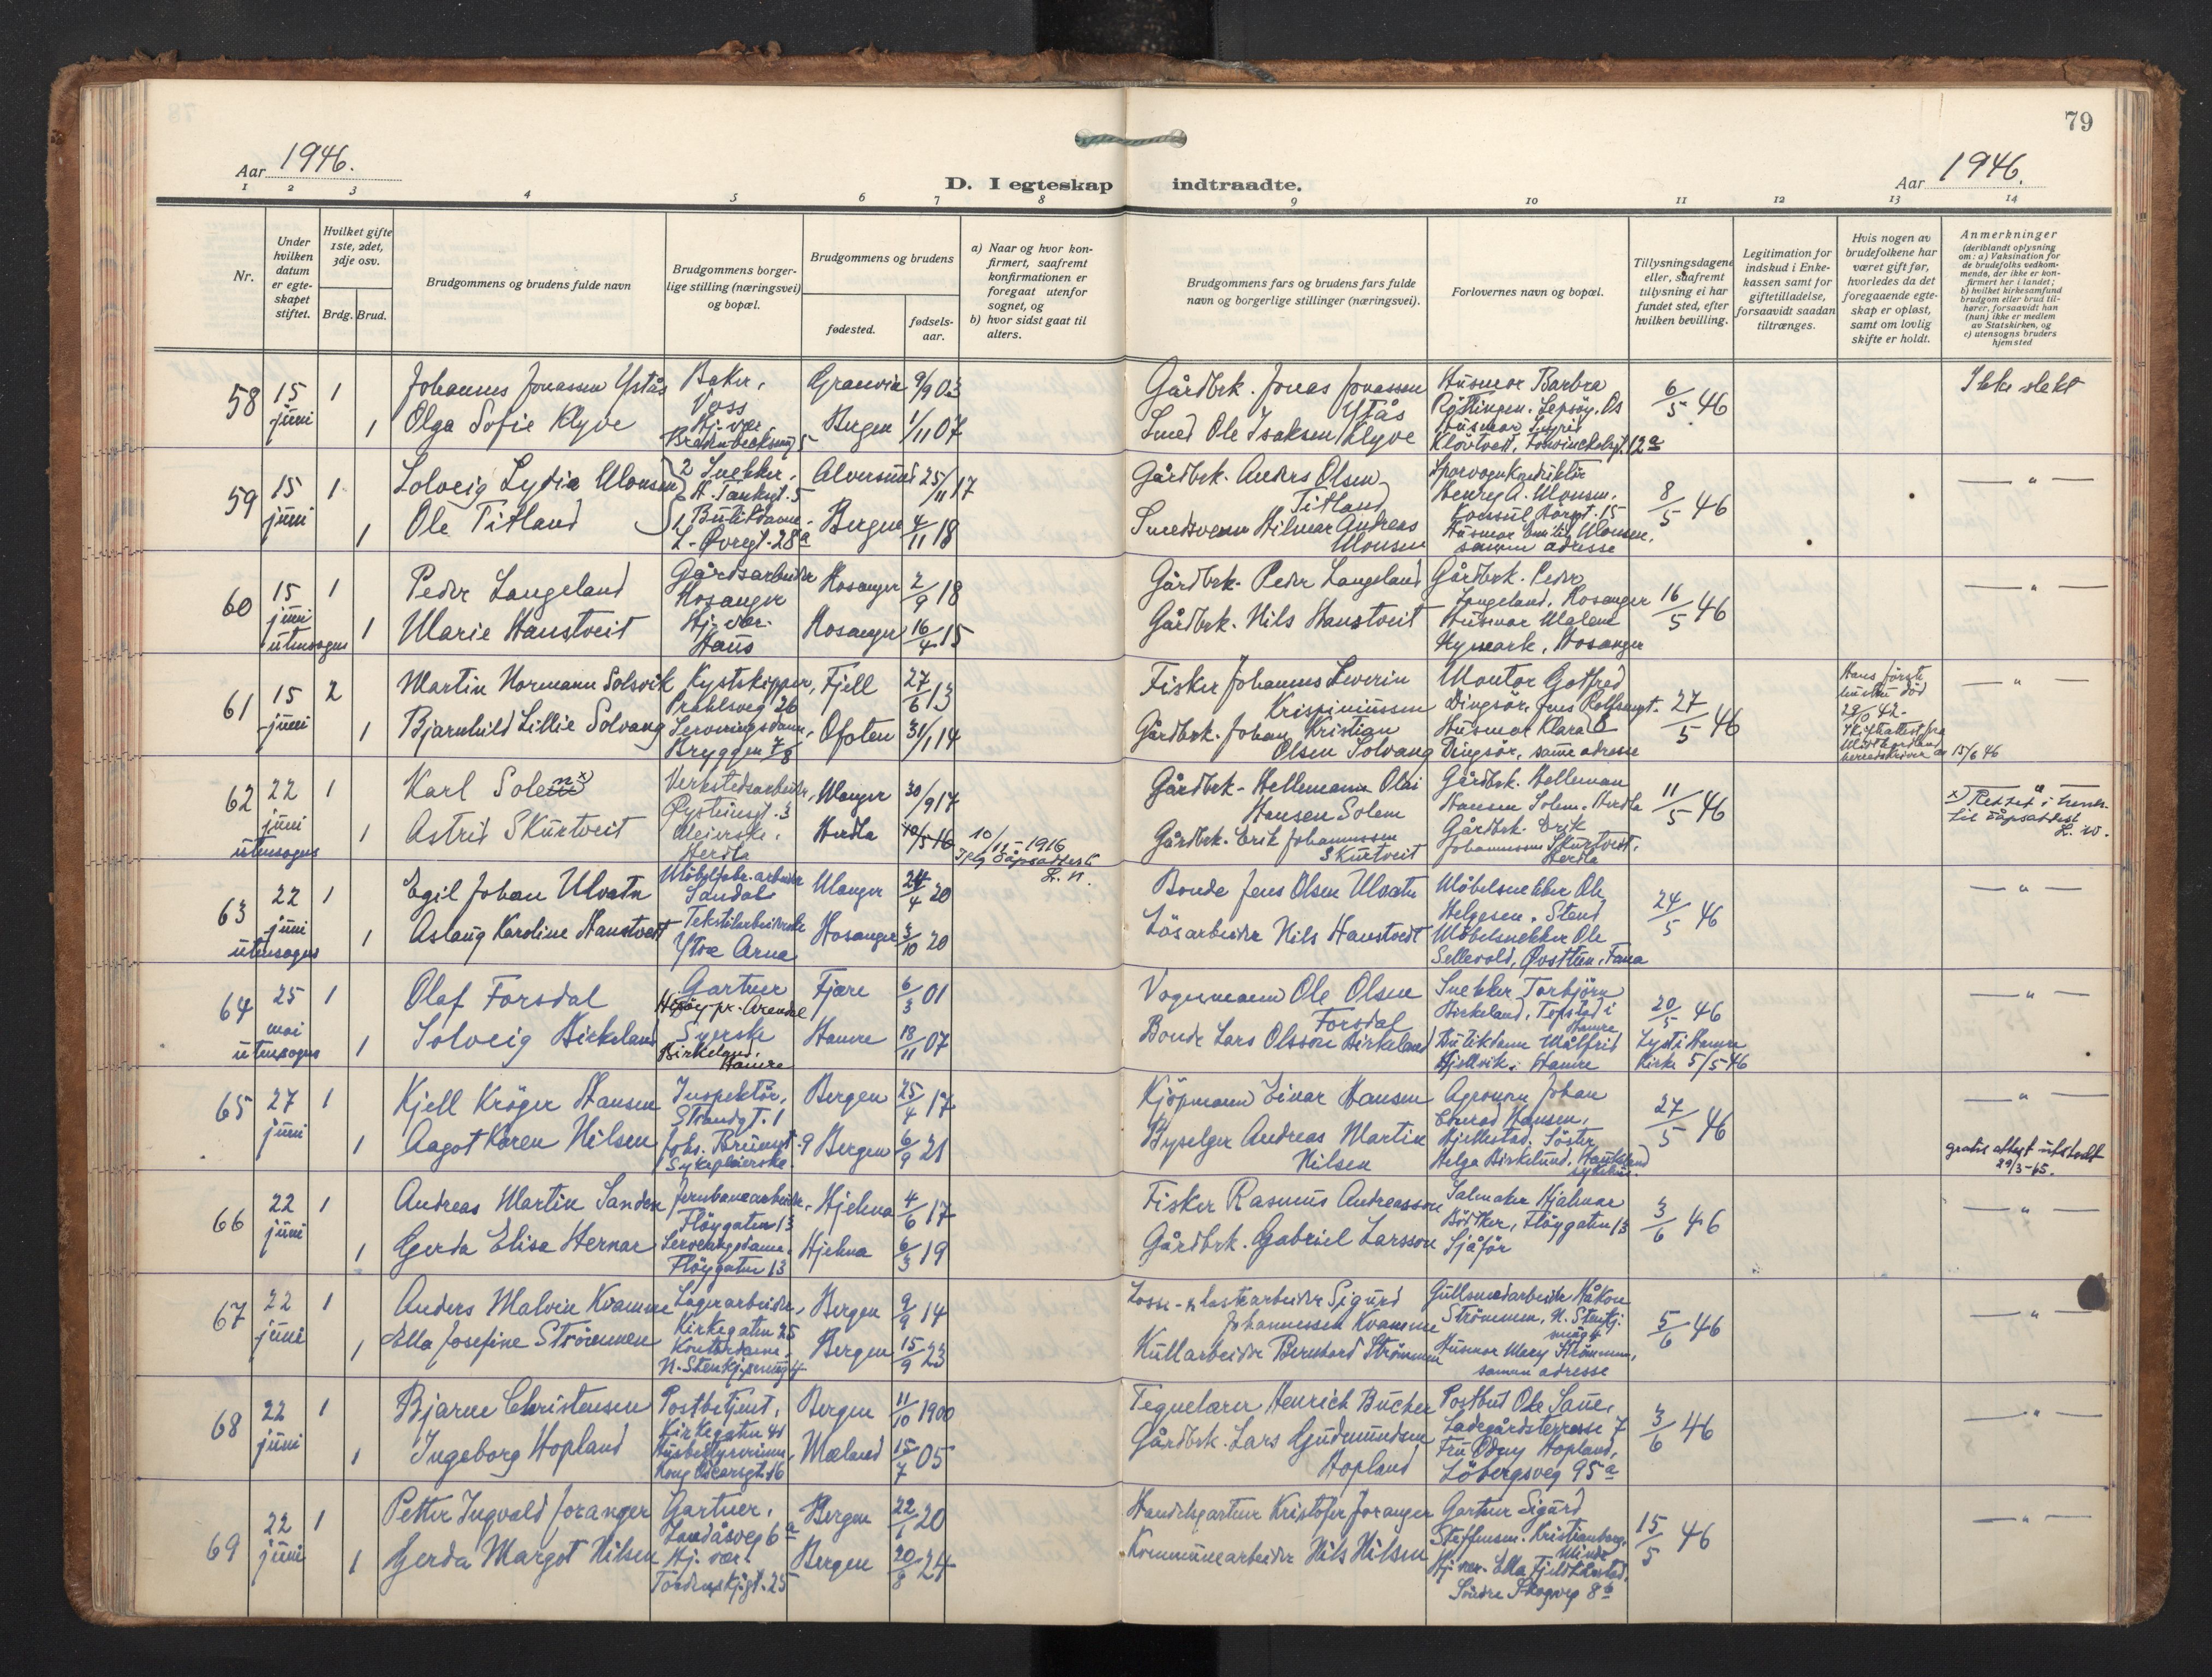 78
79
Aar 1946.
D. I egteskap indtraadte.
Aar 1946.
1 2 3 4 5 6 7 8 9 10 11 12 13 14
Nr.
Under hvilken datum er egteskapet stiftet.
Hvilket gifte 1ste, 2det, 3dje osv.
Brdg. Brud.
Brudgommens og brudens fulde navn
Brudgommens borgerlige stilling (næringsvei) og bopæl.
Brudgommens og brudens
fødested.
fødselsaar.
a) Naar og hvor konfirmert, saafremt konfirmationen er foregaat utenfor sognet, og
b) hvor sidst gaat til alters.
Brudgommens fars og brudens fars fulde navn og borgerlige stillinger (næringsvei).
Forlovernes navn og bopæl.
Tillysningsdagene eller, saafremt tillysning ei har fundet sted, efter hvilken bevilling.
Legitimation for indskud i Enkekassen samt for giftetilladelse, forsaavidt saadan tiltrænges.
Hvis nogen av brudefolkene har været gift før, hvorledes da det foregaaende egteskap er opløst, samt om lovlig skifte er holdt.
Anmerkninger
(deriblandt oplysning om: a) Vaksination for de brudefolks vedkommende, der ikke er konfirmert her i landet;
b) hvilket kirkesamfund brudgom eller brud tilhører, forsaavidt han (hun) ikke er medlem av Statskirken, og
c) utensogns bruders hjemsted
58 15 juni 1 Johannes Jonassen Ystås Baker, Voss Granvin 9/9 03 Gårdbrk. Jonas Jonassen Ystås Husmor Barbra Røttingen. Lepsöy, Os 6/5 46 Ikke slekt
1 Olga Sofie Klyve Hj. vær. 5 Bergen 1/11 07 Smed Ole Isaksen Klyve Husmor Klövtveit, 12a
59 15 juni 1 Solveig Lydia Monsen 2 Snekker, 5 Alversund 25/11 17 Gårdbrk. Anders Olsen Titland Sporvognkonduktör Henry A. Monsen, 15 8/5 46 — " —
1 Ole Titland 1 Butikdame. L. Øvregt. 28a Bergen 4/11 18 Smedsvenn Hilmar Andreas Monsen Husmor Emily Monsen, samme adresse
60 15 juni utensogns 1 Peder Langeland Gårdsarbeider Hosanger Hosanger 2/9 18 Gårdbrk. Peder Langeland Gårdbrk. Peder Langeland, Hosanger 16/5 46 — " —
1 Marie Haustveit Hj. vær. Haus Hosanger 16/4 15 Gårdbrk. Nils Haustveit Husmor Malene Hymark, Hosanger
61 15 juni 2 Martin Normann Solsvik Kystskipper, Prahlsveg 26 Fjell 27/6 13 Fisker Johannes Severin Krispinussen Montør Gotfred Dingsör, Jens Rolfsengt. 27/5 46 Hans förste hustru död 29/10 42. — " —
1 Bjarnhild Lillie Solvang Serveringsdame, Bryggen 7/8 Ofoten 31/1 14 Gårdbrk. Johan Kristian Olsen Solvang Husmor Klara E Dingsör, samme adresse 15/6 46
62 22 juni utensogns 1 Karl Solem x) Verkstedsarbeider, Øysteinsgt. 3 Manger 30/9 17 Gårdbrk. Hellemann Olai Hansen Solem Gårdbrk. Helleman Hansen Solem. Herdla 11/5 46 — " —
x) Rettet i henh. til dåpsattest
1 Astrid Skurtveit Meierske. Herdla Herdla 10/5 16 10/12 - 1916 Iflg dåpsattest L. N. Gårdbrk. Erik Johannessen Skurtveit Gårdbrk. Erik Johannessen Skurtveit, Herdla
63 22 juni utensogns 1 Egil Johan Ulvatn Möbelfabr. arbeider Sandal Manger 24/4 20 Bonde Jens Olsen Ulvatn Möbelsnekker Ole Helgesen. Stend 24/5 46 — " —
1 Aslaug Karoline Haustveit Tekstilarbeiderske Ytre Arna Hosanger 3/10 20 Lösarbeider Nils Haustveit Möbelsnekker Ole Sellevold, Øvsttun, Fana
64 25 mai utensogns 1 Olaf Forsdal Gartner Hisöy pr. Arendal Fjære 6/3 01 Vognmann Ole Olsen Forsdal Snekker Torbjörn Birkeland, Tofstad i Hamre 20/5 46 — " —
1 Solveig Birkeland Syerske Birkeland, Hamre Hamre 18/11 07 Bonde Lars Olsson Birkeland Butikdame Målfrid Hjellvik. Hamre Lyst i Hamre Kirke 5/5-46
65 27 juni 1 Kjell Kröger Hansen Inspektör, Strandgt. 1 Bergen 25/4 17 Kjöpmann Einar Hansen Agronom Johan Conrad Hansen, Hjellestad. 27/5 46 — " —
1 Aagot Karen Nilsen Johs. Brunsgt. 9 Sykepleierske. Bergen 6/9 21 Byselger Andreas Martin Nilsen Söster Helga Birkelund, Haukeland sykehus. gratis attest utstedt 29/3-65.
66 22 juni 1 Andreas Martin Sanden Jernbanearbeider, Flöygaten 13 Hjelma 4/6 17 Fisker Rasmus Andreasson Salmaker Hjalmar Bödtker, Flöygaten 13 3/6 46 — " —
1 Gerda Elise Hernar Serveringsdame, Flöygaten 13 Hjelma 6/3 19 Gårdbrk. Gabriel Larsson Sjåför
67 22 juni 1 Anders Malvin Kvamme Lagerarbeider, Kirkegaten 25 Bergen 9/9 14 Losse- & lastearbeider Sigurd Johannessen Kvamme Gullsmedarbeider Håkon Strömmen, N. Stenkj. smug 4 5/6 46 — " —
1 Ella Josefine Strömmen Kontordame, N. Stenkj.smug 4 Bergen 15/9 23 Kullarbeider Bernhard Strömmen Husmor Mary Strömmen, samme adresse
68 22 juni 1 Bjarne Christensen Postbetjent, Kirkegaten 41 Bergen 11/10 1900 Tegnelærer Henrich Bucher Postbud Ole Saue, Ladegårdsterrasse 7 3/6 46 — " —
1 Ingeborg Hopland Husbestyrerinne, Kong Oscarsgt. 16 Mæland 15/7 05 Gårdbrk. Lars Gudmundsen Hopland Fru Odny Hopland, Löbergsveg 95a
69 22 juni 1 Petter Ingvald Joranger Gartner, Landåsveg 6a Bergen 22/1 20 Handelsgartner Kristofer Joranger Gartner Sigurd Steffensen. Kristianborg, Minde 15/5 46 — " —
1 Gerda Margot Nilsen Hj. vær. Tordenskj.gt. 25 Bergen 20/8 24 Kommunearbeider Nils Nilsen Hj. vær. Ella Söndre Skogveg 8b